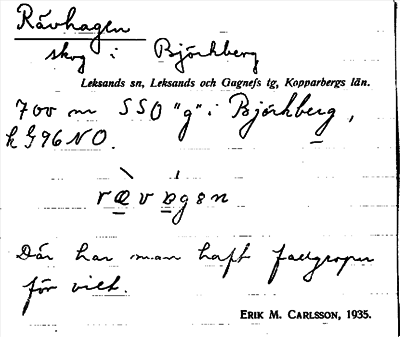 Rävhagen
skog i Björkberg
Leksands sn, Leksands och Gagnefs tg, Kopparbergs län.
700 m SSO "g" i Björkberg,
k G96NO.
rævagen
Där har man haft fallgropar
för vilt.
ERIK M. CARLSSON, 1935.